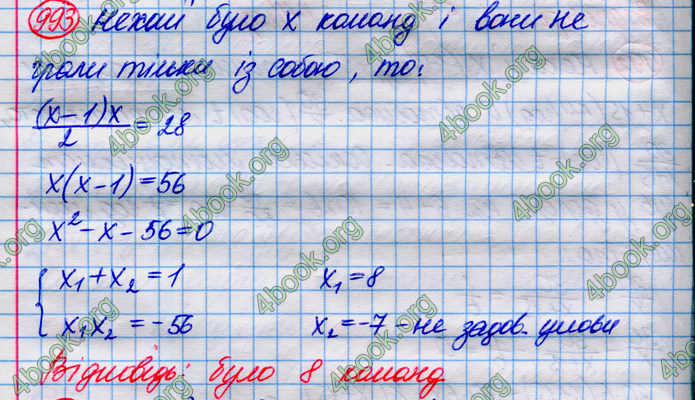 993 Нехай було x команд і вони не
грали тільки із собою, то:
(x-1)x/2 = 28
x(x-1)=56
x²-x-56=0
{ x₁+x₂=1 x₁=8
x₁x₂=-56 x₂=-7 - не задов. умови
Відповідь: було 8 команд
4book.org